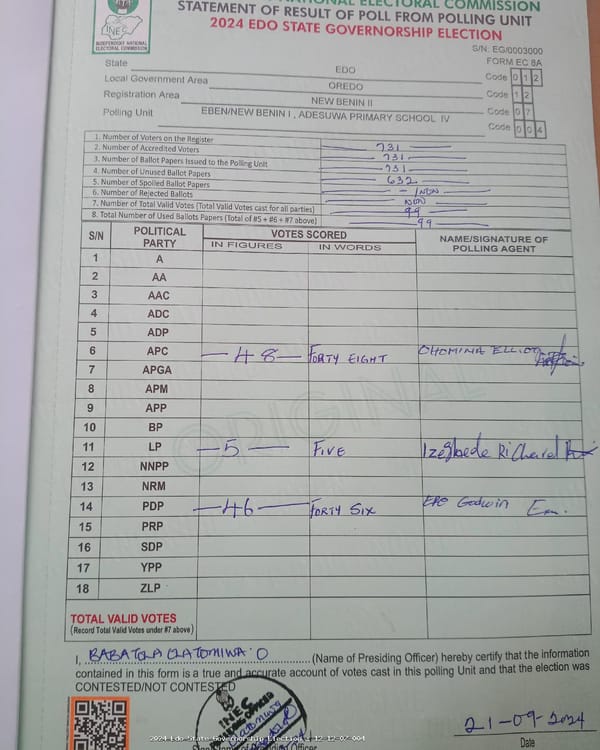 INDEPENDENT NATIONAL ELECTORAL COMMISSION
STATEMENT OF RESULT OF POLL FROM POLLING UNIT
2024 EDO STATE GOVERNORSHIP ELECTION
INEC
INDEPENDENT NATIONAL
ELECTORAL COMMISSION
S/N: EG/0003000
FORM EC 8A
State EDO Code 0 1 2
Local Government Area OREDO Code 1 2
Registration Area NEW BENIN II Code 0 7
Polling Unit EBEN/NEW BENIN I , ADESUWA PRIMARY SCHOOL IV Code 0 0 4
1. Number of Voters on the Register 731
2. Number of Accredited Voters 731
3. Number of Ballot Papers Issued to the Polling Unit 731
4. Number of Unused Ballot Papers 632
5. Number of Spoiled Ballot Papers
6. Number of Rejected Ballots
7. Number of Total Valid Votes (Total Valid Votes cast for all parties) 99
8. Total Number of Used Ballots Papers (Total of #5 + #6 + #7 above) 99
S/N POLITICAL PARTY VOTES SCORED NAME/SIGNATURE OF POLLING AGENT
IN FIGURES IN WORDS
1 A
2 AA
3 AAC
4 ADC
5 ADP
6 APC 48 FORTY EIGHT OHOMINA ELLIOT
7 APGA
8 APM
9 APP
10 BP
11 LP 5 FIVE Izegbede Richard
12 NNPP
13 NRM
14 PDP 46 FORTY SIX Godwin
15 PRP
16 SDP
17 YPP
18 ZLP
ORIGINAL
TOTAL VALID VOTES
(Record Total Valid Votes under #7 above)
I, BABATOLA OLATOMIWA O (Name of Presiding Officer) hereby certify that the information
contained in this form is a true and accurate account of votes cast in this polling Unit and that the election was
CONTESTED/NOT CONTESTED
INEC
21-09-2024
Date